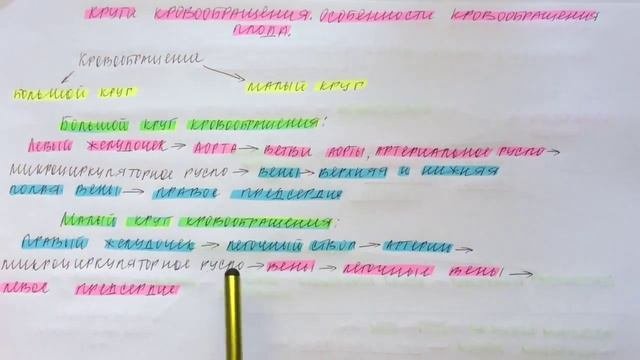 КРУГИ КРОВООБРАЩЕНИЯ. ОСОБЕННОСТИ КРОВООБРАЩЕНИЯ
ПЛОДА.
КРОВООБРАЩЕНИЕ
БОЛЬШОЙ КРУГ МАЛЫЙ КРУГ
БОЛЬШОЙ КРУГ КРОВООБРАЩЕНИЯ:
ЛЕВЫЙ ЖЕЛУДОЧЕК → АОРТА → ВЕТВИ АОРТЫ, АРТЕРИАЛЬНОЕ РУСЛО →
МИКРОЦИРКУЛЯТОРНОЕ РУСЛО → ВЕНЫ → ВЕРХНЯЯ И НИЖНЯЯ
ПОЛАЯ ВЕНЫ → ПРАВОЕ ПРЕДСЕРДИЕ
МАЛЫЙ КРУГ КРОВООБРАЩЕНИЯ:
ПРАВЫЙ ЖЕЛУДОЧЕК → ЛЕГОЧНЫЙ СТВОЛ → АРТЕРИИ →
МИКРОЦИРКУЛЯТОРНОЕ РУСЛО → ВЕНЫ → ЛЕГОЧНЫЕ ВЕНЫ →
ЛЕВОЕ ПРЕДСЕРДИЕ